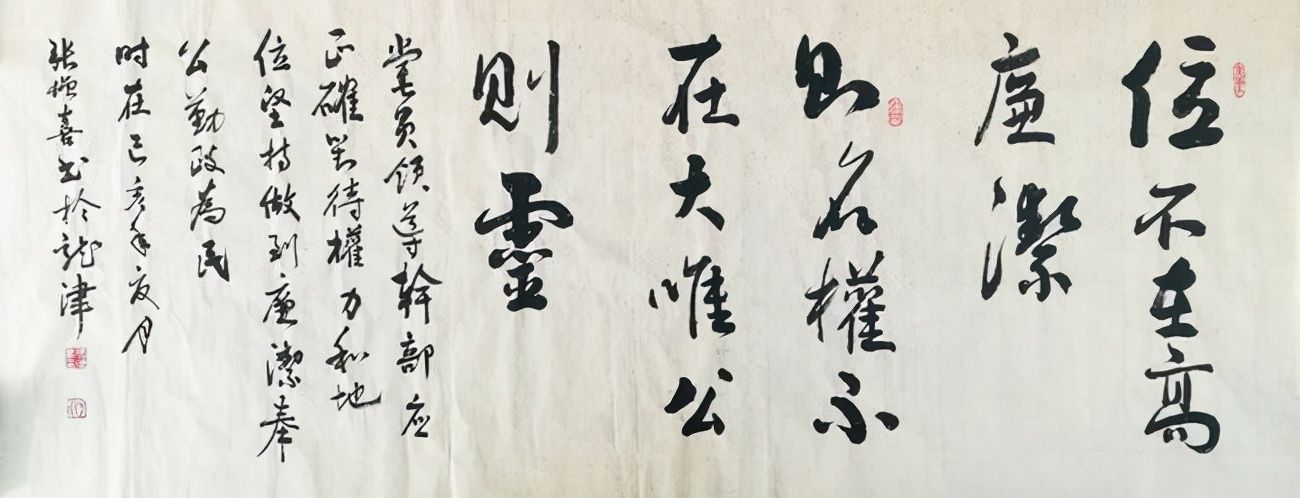 位不在高
廉潔
則名權不
在大唯公
則靈
党員領導幹部应
正確對待權力和地
位坚持做到廉潔奉
公勤政為民
时在己亥年夏月
张增喜书於龍津